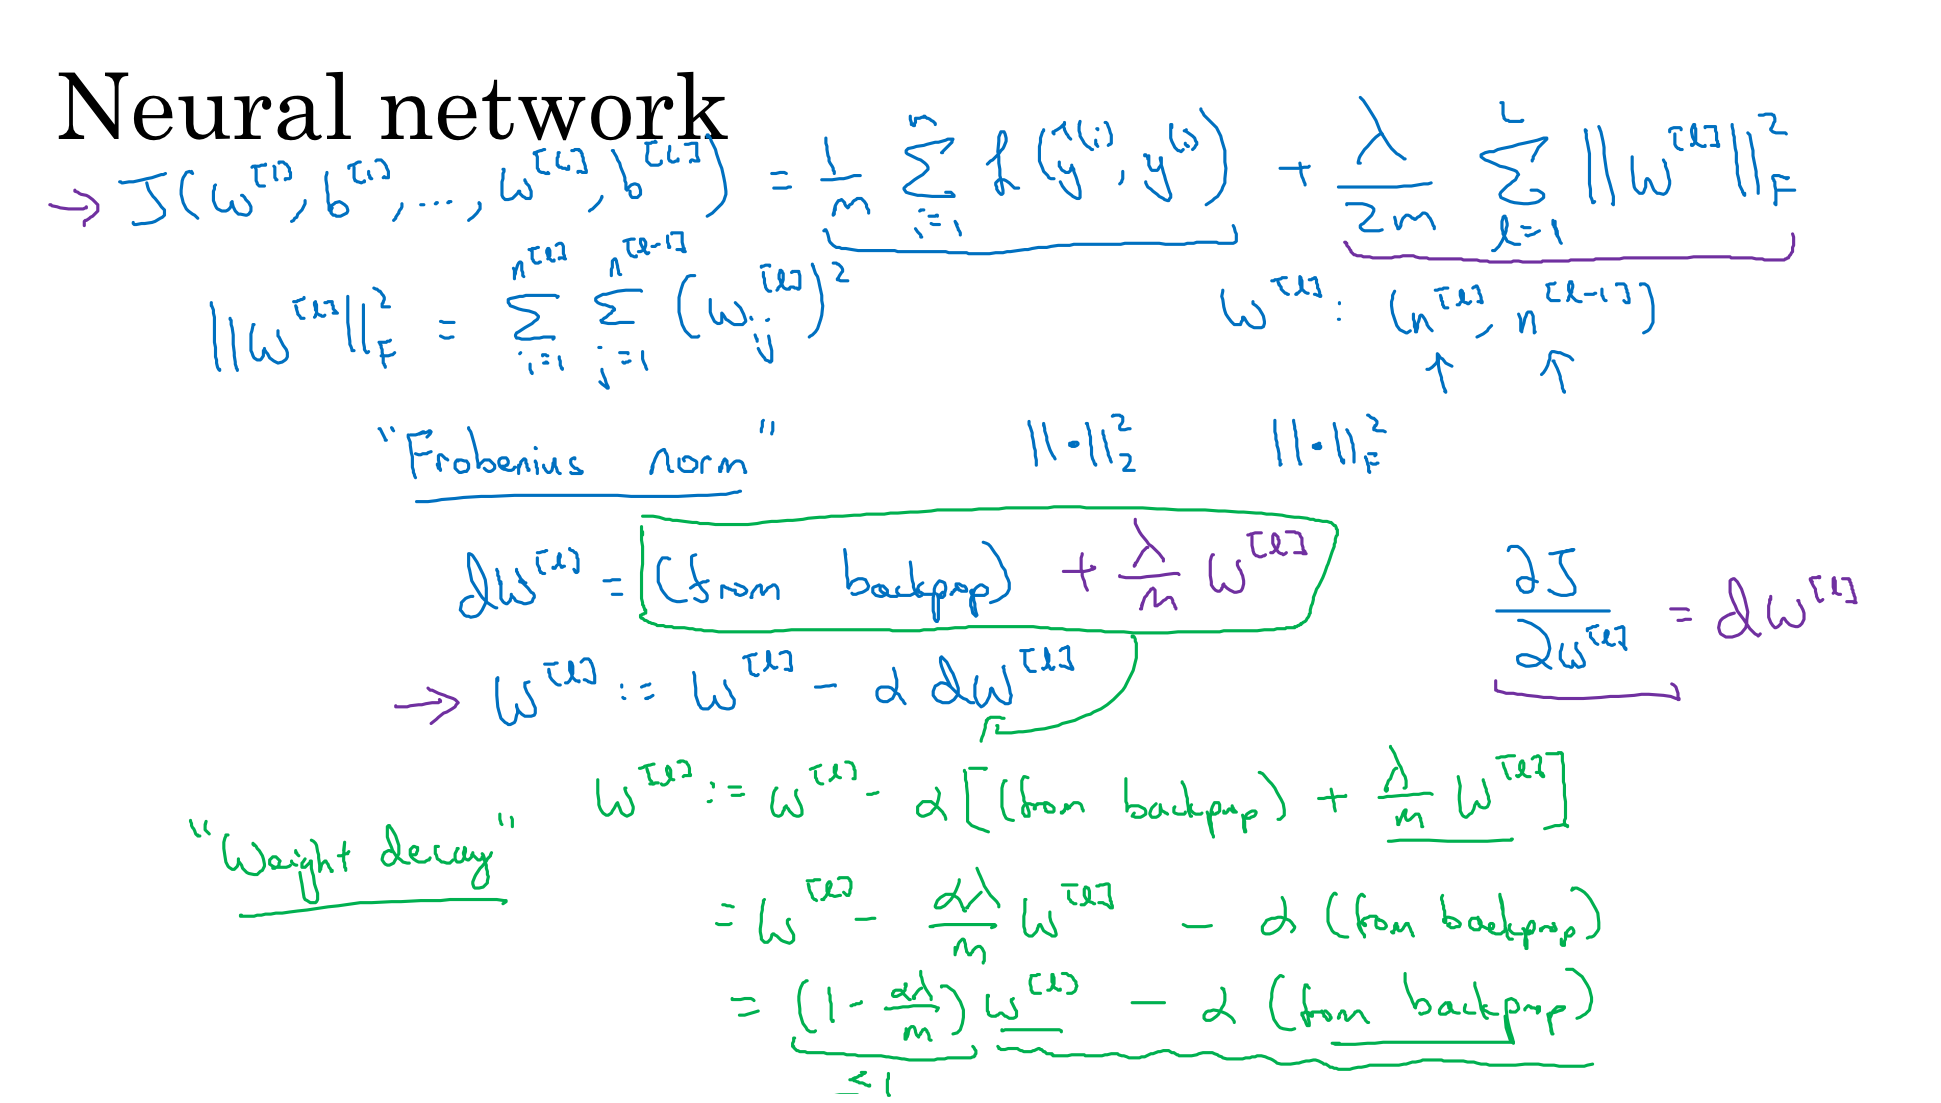 Neural network
→ J(w^[1], b^[1], ..., w^[L], b^[L]) = 1/m Σ_{i=1}^{m} L(ŷ^(i), y^(i)) + λ/2m Σ_{l=1}^{L} ||w^[l]||_F^2
||w^[l]||_F^2 = Σ_{i=1}^{n^[l]} Σ_{j=1}^{n^[l-1]} (w_ij^[l])^2    w^[l]: (n^[l], n^[l-1])
↑ ↑
"Frobenius norm"    ||·||_2^2    ||·||_F^2
dw^[l] = (from backprop) + λ/m w^[l]    ∂J/∂w^[l] = dw^[l]
→ w^[l] := w^[l] - α dw^[l]
w^[l] := w^[l] - α[(from backprop) + λ/m w^[l]]
"Weight decay"
= w^[l] - αλ/m w^[l] - α (from backprop)
= (1 - αλ/m) w^[l] - α (from backprop)
<1